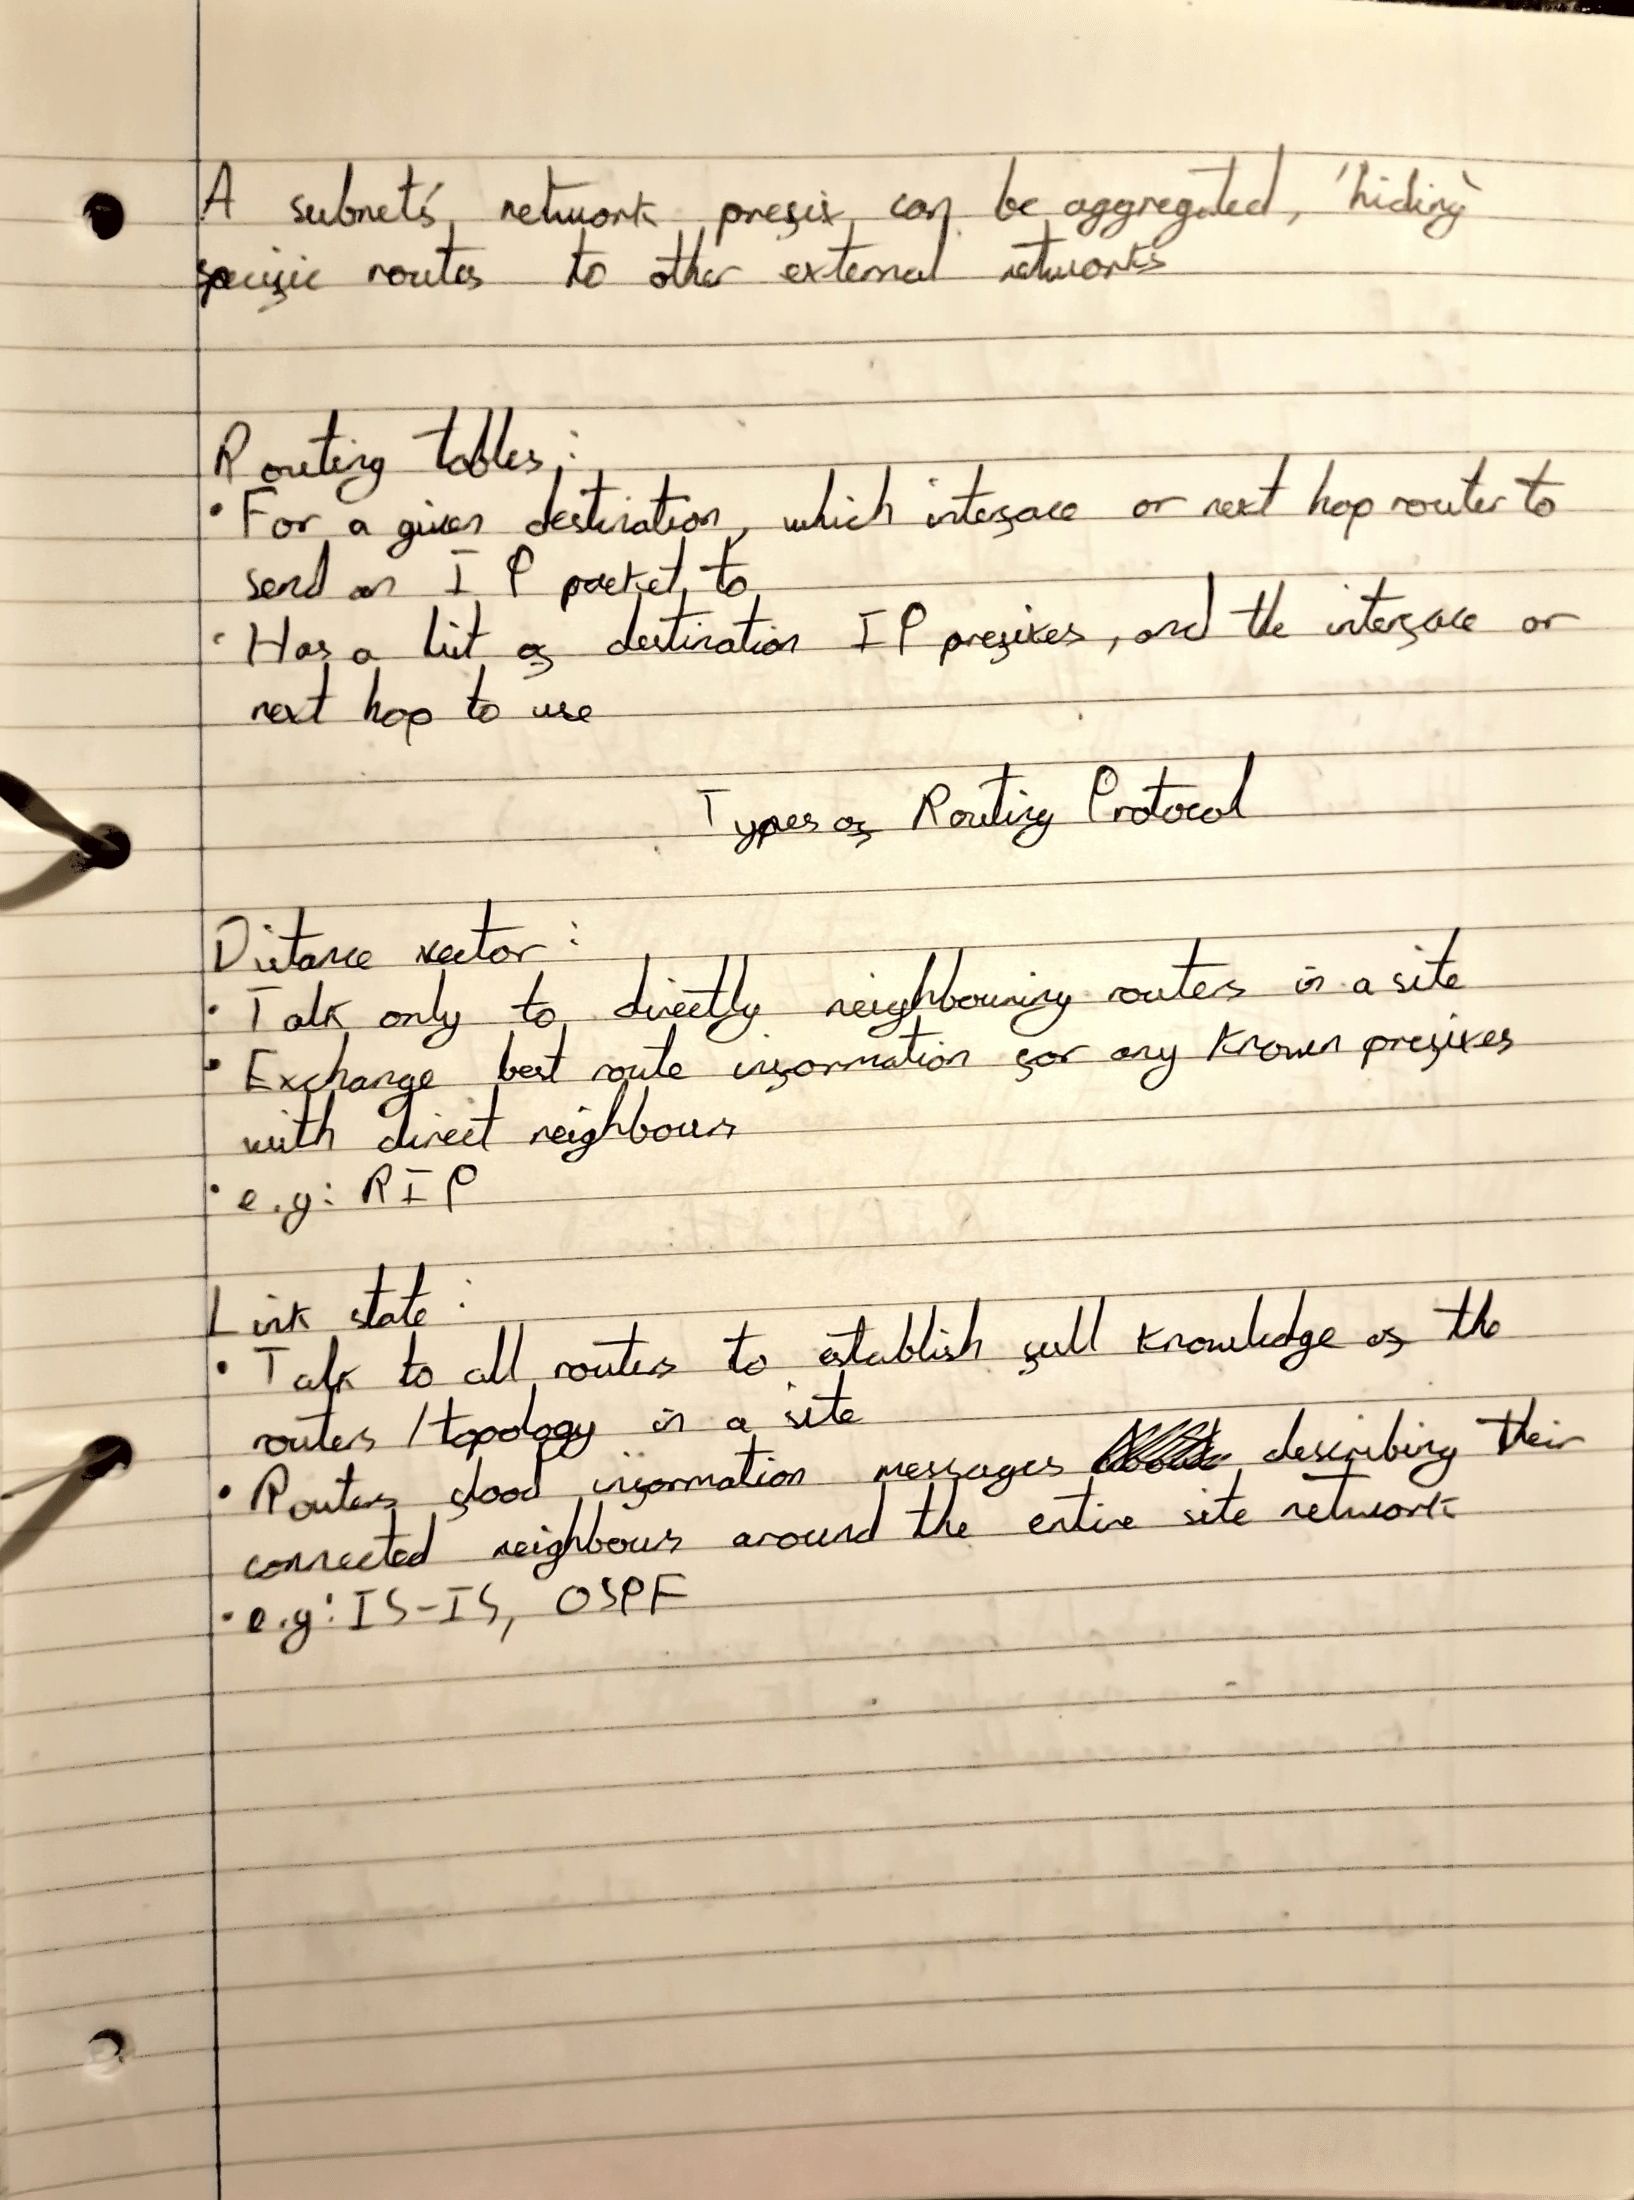 A subnet's network prefix can be aggregated, 'hiding'
specific routes to other external networks
Routing tables:
• For a given destination, which interface or next hop router to
send an IP packet to
• Has a list of destination IP prefixes, and the interface or
next hop to use
Types of Routing Protocol
Distance vector:
• Talk only to directly neighbouring routers in a site
• Exchange best route information for any known prefixes
with direct neighbours
• e.g: RIP
Link state:
• Talk to all routers to establish full knowledge of the
routers / topology in a site
• Routers flood information messages describing their
connected neighbours around the entire site network
• e.g: IS-IS, OSPF